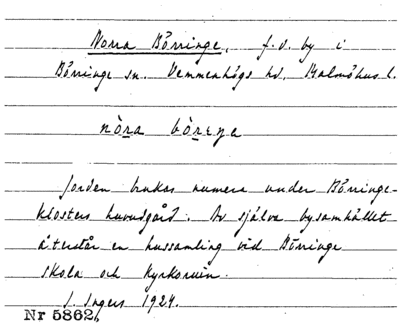 Norra Börringe, f.d. by i
Börringe sn. Vemmenhögs hd. Malmöhus l.
nòra bòreŋe
Jorden brukas numera under Börringe-
klosters huvudgård. Av själva bysamhället
återstår en hussamling vid Börringe
skola och kyrkoruin.
I. Ingers 1924.
Nr 5862,